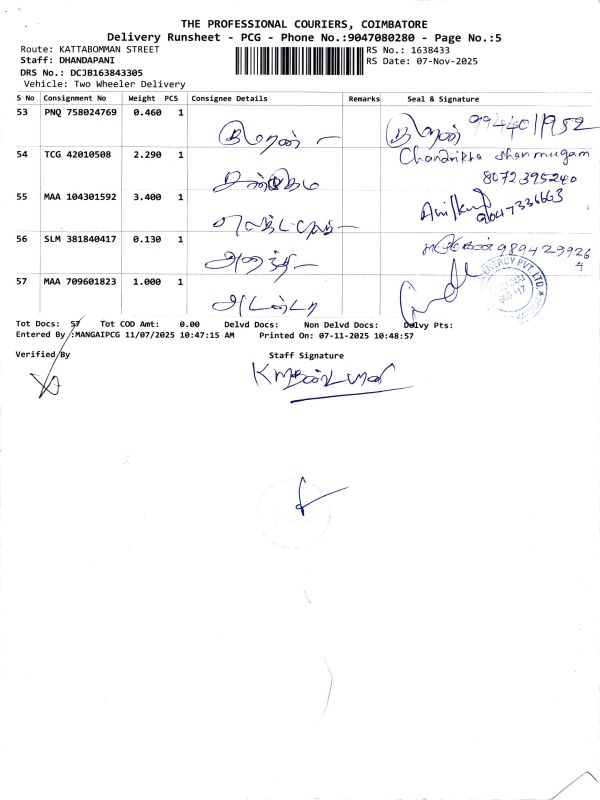 THE PROFESSIONAL COURIERS, COIMBATORE
Delivery Runsheet - PCG - Phone No.:9047080280 - Page No.:5
Route: KATTABOMMAN STREET RS No.: 1638433
Staff: DHANDAPANI RS Date: 07-Nov-2025
DRS No.: DCJB163843305
Vehicle: Two Wheeler Delivery
S No Consignment No Weight PCS Consignee Details Remarks Seal & Signature
53 PNQ 758024769 0.460 1 9944401952
54 TCG 42010508 2.290 1 Chandrikha shanmugam
8072395240
55 MAA 104301592 3.400 1 Anilkumar
56 SLM 381840417 0.130 1 9894299264
57 MAA 709601823 1.000 1 ENERGY PVT LTD.
Tot Docs: 57 Tot COD Amt: 0.00 Delvd Docs: Non Delvd Docs: Delvy Pts:
Entered By :MANGAIPCG 11/07/2025 10:47:15 AM Printed On: 07-11-2025 10:48:57
Verified By Staff Signature